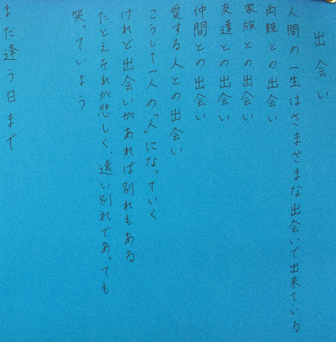 出会い
人間の一生はさまざまな出会いで出来ている
両親との出会い
家族との出会い
友達との出会い
仲間との出会い
愛する人との出会い
こうして一人の“人”になっていく
けれど出会いがあれば別れもある
たとえそれが悲しく、遠い別れであっても
笑っていよう
また逢う日まで